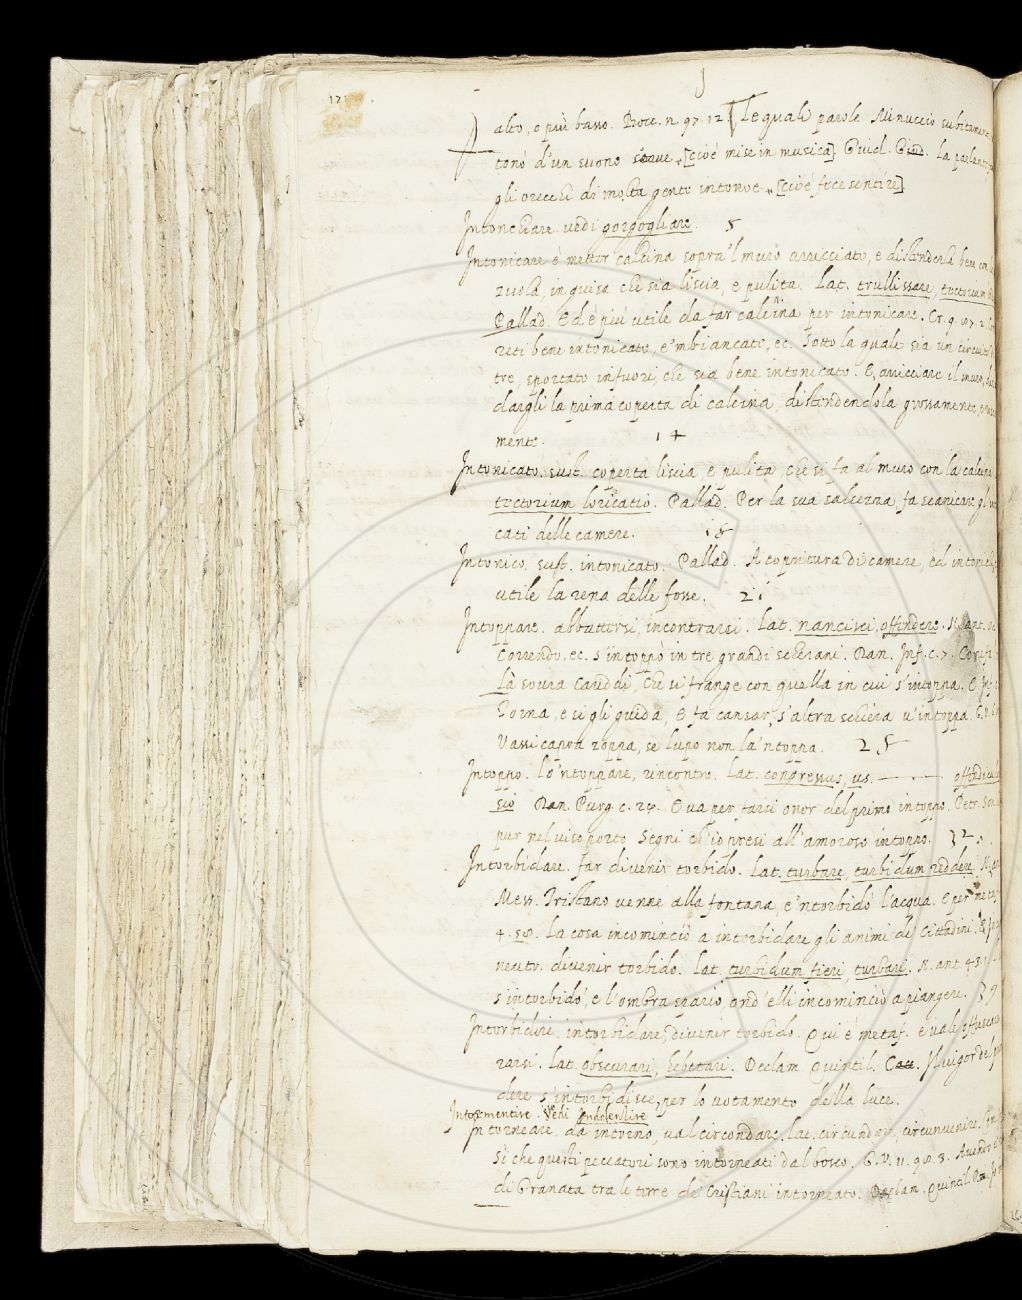 171
alto, o più basso. Bocc. n. 97. 12. Le quali parole Minuccio subitamente
tonò d'un suono soave, [cioè mise in musica] Guid. Giud. la parlante
gli orecchi di molta gente intonoe, [cioè fece sentire]
Intonchiare. vedi gorgogliare. 5
Intonicare è metter calcina sopra 'l muro arricciato, e distenderla bene con la
zuola, in guisa che sia liscia, e pulita. Lat. trullissare, tectorium
Pallad. Ed è più utile da far calcina per intonicare. Cr. 9. 87. 2.
reti bene intonicate, e 'mbiancate, ec. Sotto la quale sia un circuito
tre, sportato infuori, che sia bene intonicato. E, arricciare il muro,
dargli la prima coperta di calcina, distendendola grossamente,
mente. 14
Intonicato. sust. coperta liscia, e pulita che si fa al muro con la calcina
tectorium loricatio. Pallad. Per la sua salsezza, fa scanicare gl'
cati delle camere. 18
Intonico. sust. intonicato. Pallad. A copritura di camere, ed intonico,
utile la rena delle fosse. 21
Intoppare. abbattersi, incontrarsi. Lat. nancisci, offendere. N. ant.
Correndo, ec. s'intoppò in tre grandi scherani. Dan. Inf. c. 7.
Là sovra Cariddi, che si frange con quella in cui s'intoppa. E Inf.
Torna, e sì gli guida, E fa cansar, s'altra schiera v'intoppa. G. V.
Vassi capra zoppa, se lupo non la 'ntoppa. 25
Intoppo. lo 'ntoppare, rincontro. Lat. congressus, us. offendicul
sio Dan. Purg. c. 24. E va per farsi onor del primo intoppo. Petr. Son.
pur nel viso porto Segni ch'io presi all'amoroso intoppo. 32.
Intorbidare. far divenir torbido. Lat. turbare, turbidum reddere. N. an
Mess. Tristano venne alla fontana, e 'ntorbidò l'acqua. E per met
4. 58. La cosa incominciò a intorbidare gli animi de' Cittadini. E
neutr. divenir torbido. Lat. turbidum fieri, turbari. N. ant. 43. 1.
s'intorbidò, e l'ombra sparìo, ond'elli incominciò a piangere. 39
Intorbidire, intorbidare, divenir torbido. Qui è metaf. e vale offuscare
rarsi. Lat. obscurari, hebetari. Declam. Quintil. C. Il vigor del
dere s'intorbidisce, per lo votamento della luce.
Intormentire. vedi indolentire
Intorneare. da intorno, val circondare. Lat. circundare, circunvenire.
Sì che questi peccatori sono intorneati dal bosco. G. V. 11. 98. 3. Avendo
di Granata tra le terre de' Cristiani intorneato. Declam. Quintil.